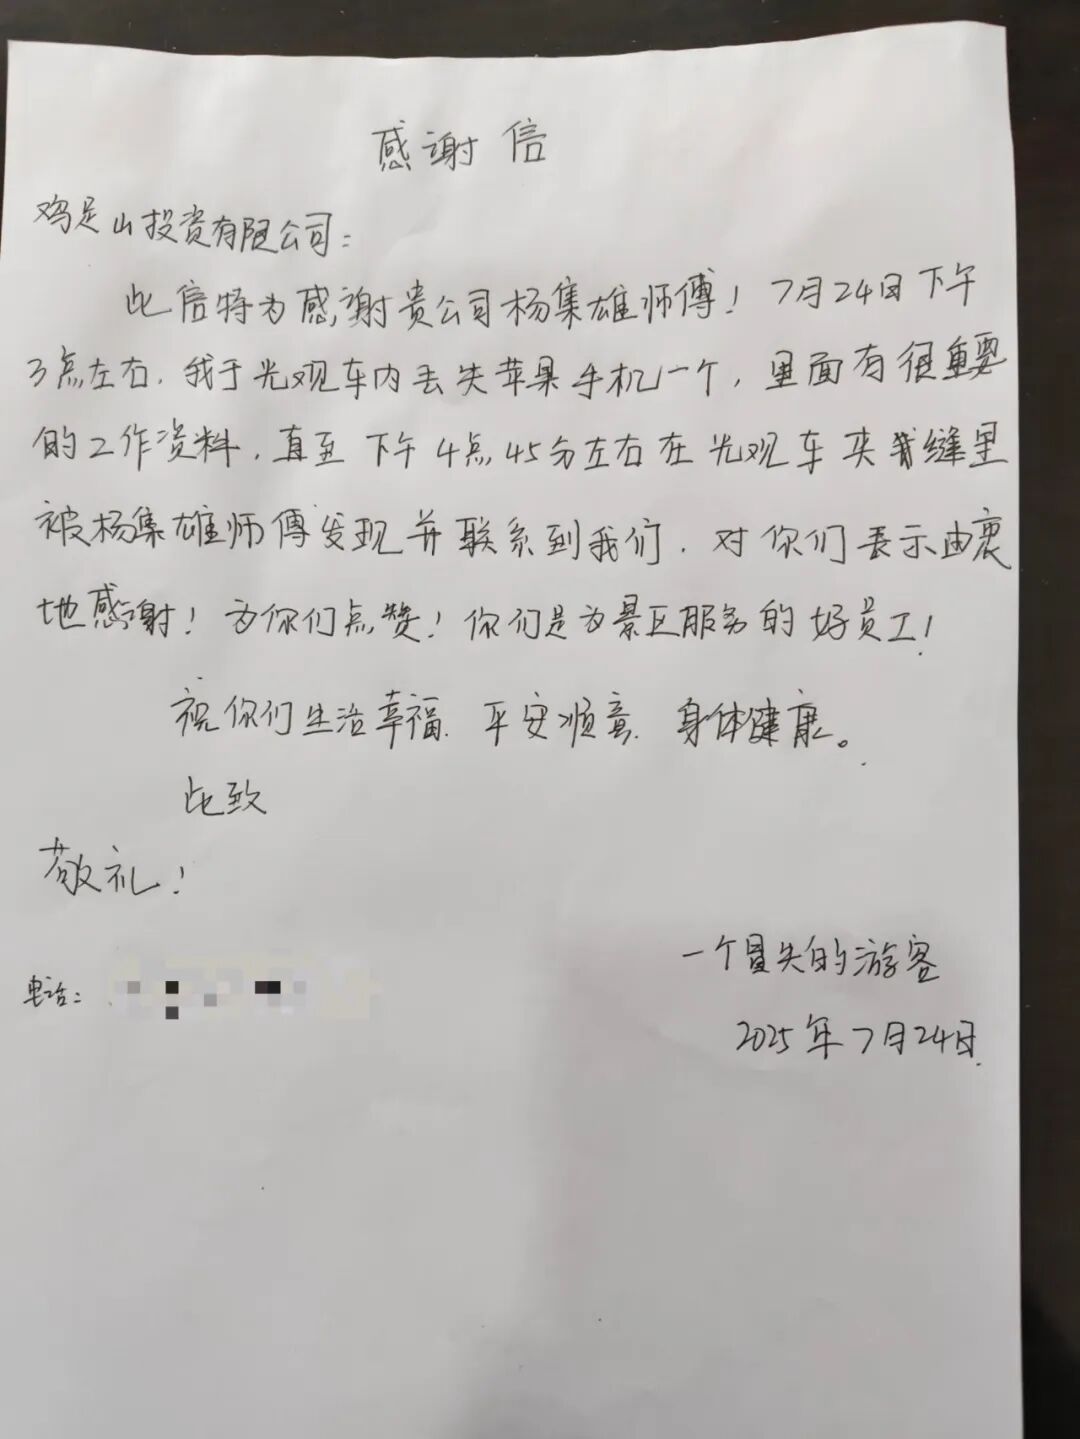 感谢信
鸡足山投资有限公司：
此信特为感谢贵公司杨集雄师傅！7月24日下午
3点左右，我于光观车内丢失苹果手机一个，里面有很重要
的工作资料，直至下午4点45分左右在光观车夹缝里
被杨集雄师傅发现并联系到我们，对你们表示由衷
地感谢！为你们点赞！你们是为景区服务的好员工！
祝你们生活幸福、平安顺意、身体健康。
此致
敬礼！
一个冒失的游客
电话：
2025年7月24日